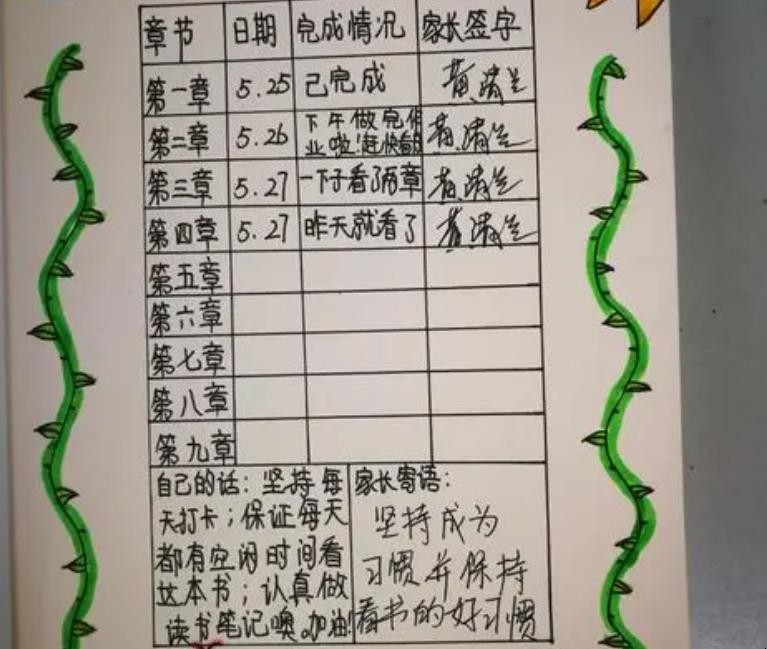 章节 日期 完成情况 家长签字
第一章 5.25 已完成 黄清兰
第二章 5.26 下午做完作业啦!赶快看 黄清兰
第三章 5.27 一下子看了两章 黄清兰
第四章 5.27 昨天就看了 黄清兰
第五章
第六章
第七章
第八章
第九章
自己的话：坚持每
天打卡；保证每天
都有空闲时间看
这本书；认真做
读书笔记噢。加油!
家长寄语：
坚持成为
习惯并保持
看书的好习惯